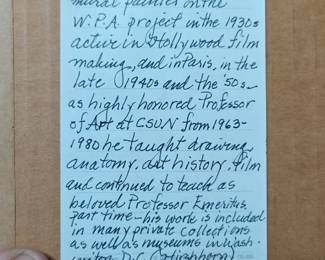 mural painter on the
W.P.A. project in the 1930s
active in Hollywood film
making, and in Paris, in the
late 1940s and the '50s_
as highly honored Professor
of Art at CSUN from 1963-
1980 he taught drawing
anatomy, art history, film
and continued to teach as
beloved Professor Emeritus,
part time - his work is included
in many private collections
as well as museums in Wash-
ington D.C. (Hirshhorn)